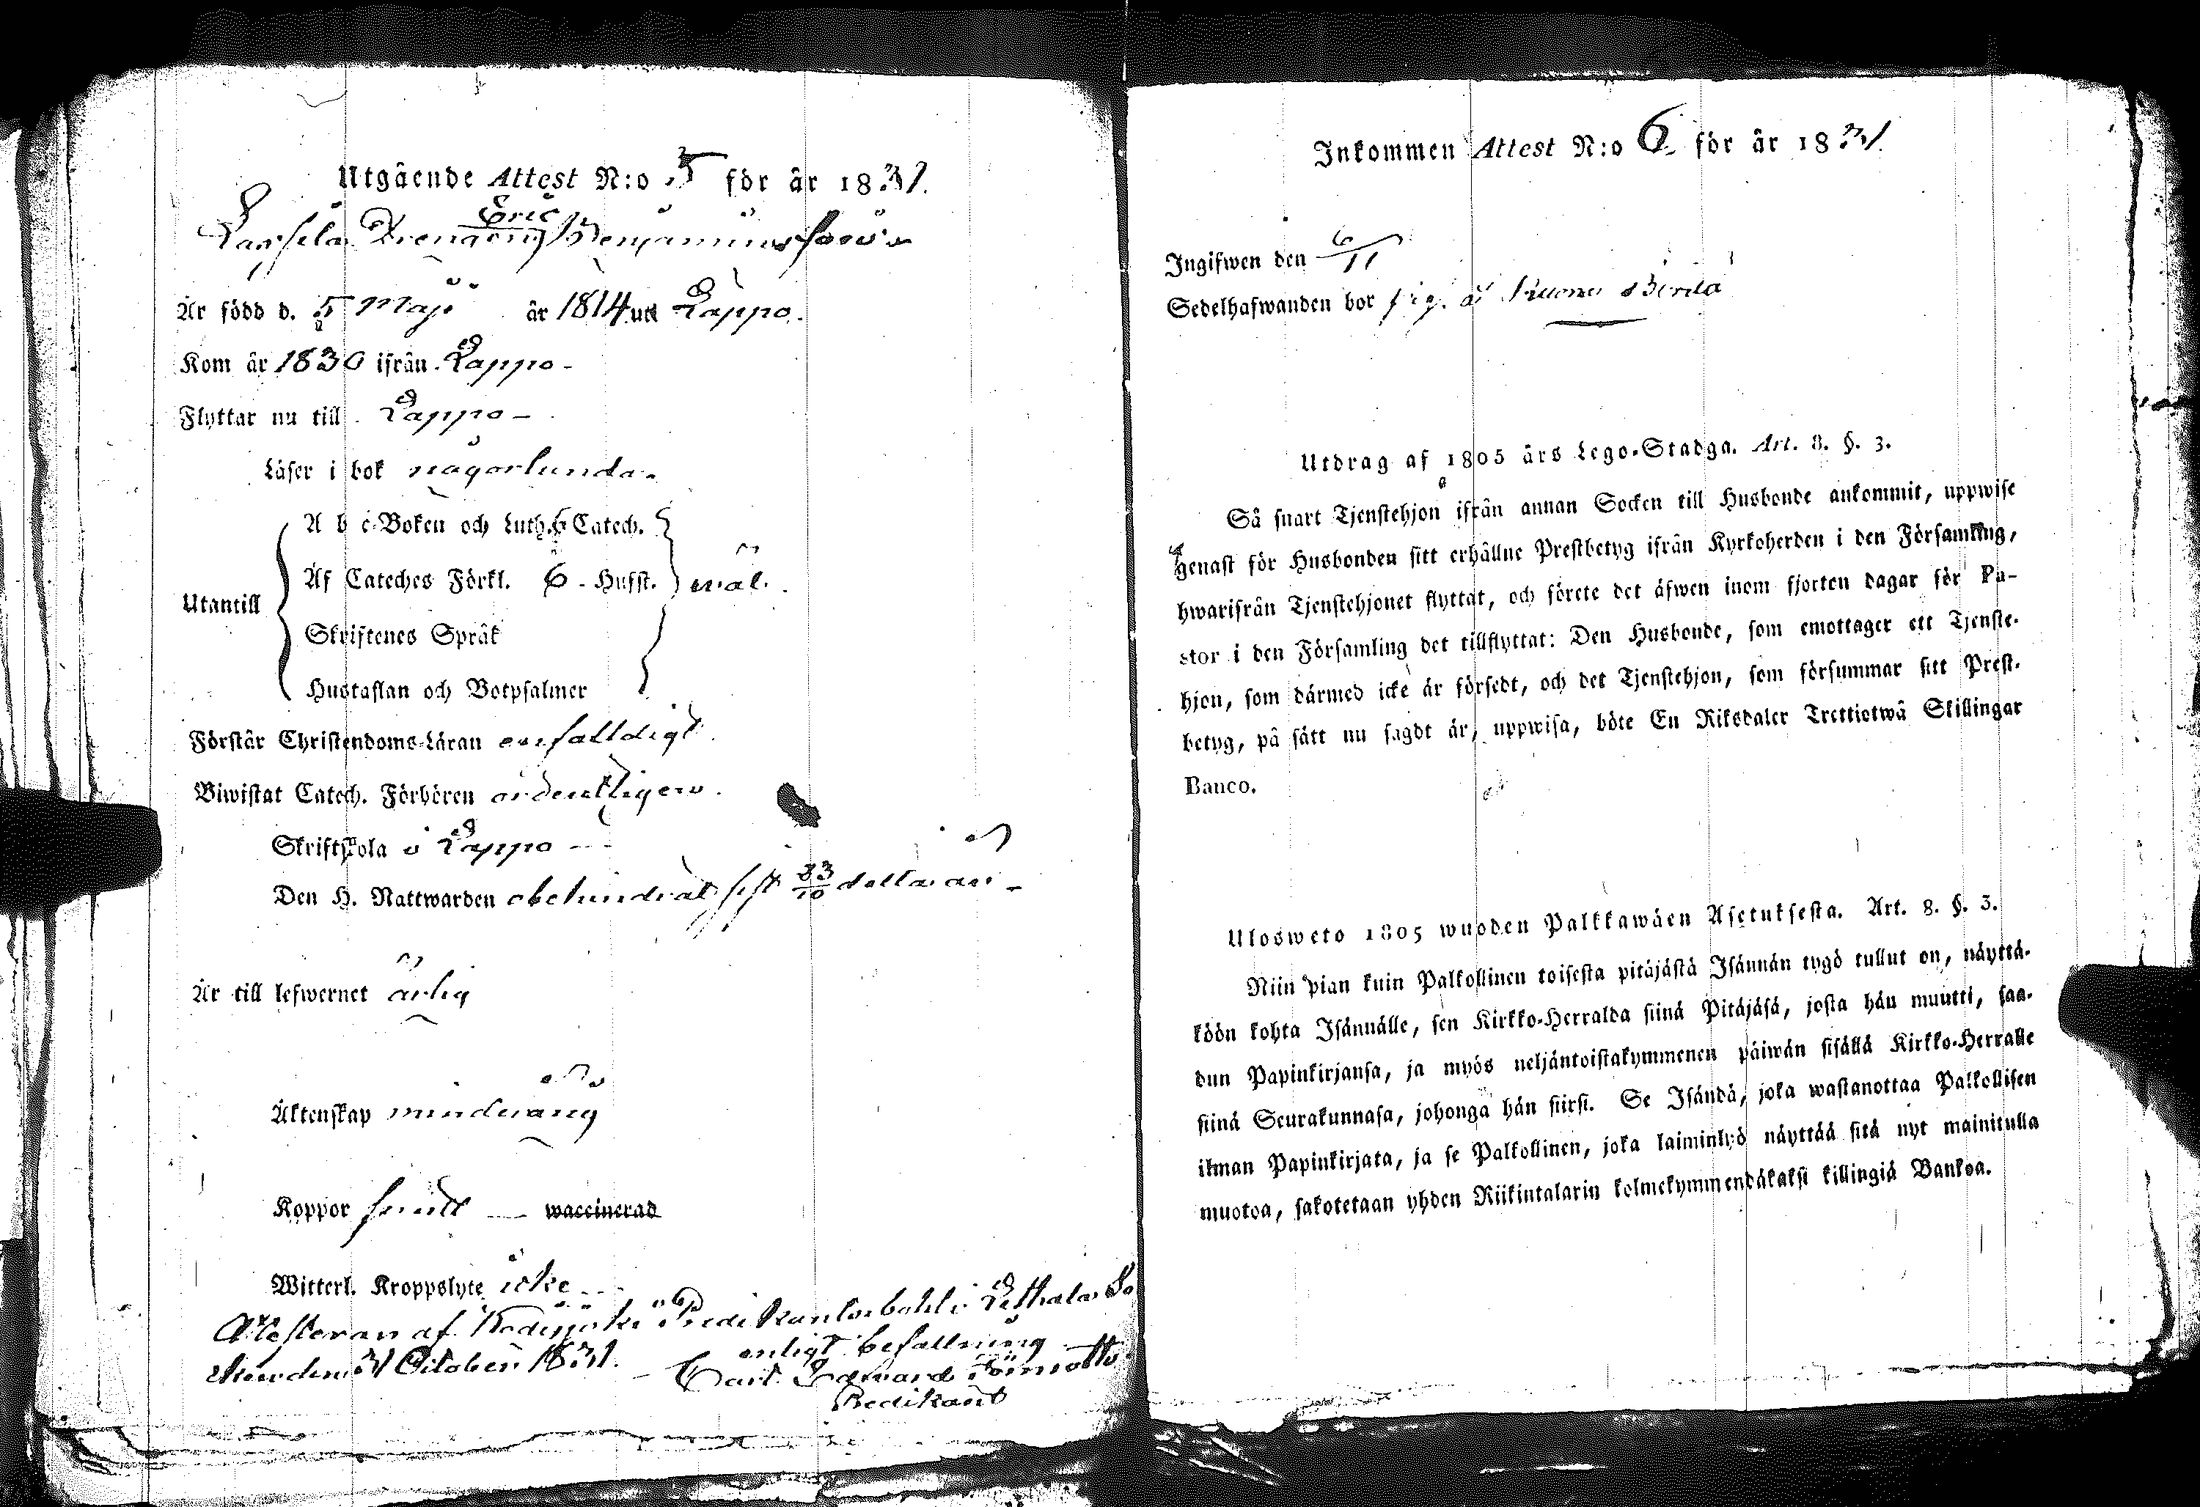 Utgående Attest N:o 5 för år 1831.
Eric
Drengen Benjaminsson
Är född d. 5 Maji år 1814 uti Lappo.
Kom år 1830 ifrån Lappo-
Flyttar nu till Lappo-
Läser i bok någorlunda.
A b c-Boken och Luth. Catech.
Af Cateches Förkl. 6 - Hufst.
Utantill
Skriftenes Språk
Hustaflan och Botpsalmer
Förstår Christendoms-Läran enfaldigt.
Biwistat Catech. Förhören ordentligen.
Skriftskola i Lappo
Den H. Nattwarden obehindrat sist 23/10 detta år-
Är till lefwernet ärlig
Äktenskap minderårig
Koppor haft — waccinerad
Witterl. Kroppslyte icke
Attesteras af Predikantsbohl i
enligt befallning
den 31 October 1831. Carl Edvard
Predikant
Inkommen Attest N:o 6. för år 1831.
Ingifwen den 6/11
Sedelhafwanden bor
Utdrag af 1805 års Lego-Stadga. Art. 8. §. 3.
Så snart Tjenstehjon ifrån annan Socken till Husbonde ankommit, uppwise
genast för Husbonden sitt erhållne Prestbetyg ifrån Kyrkoherden i den Församling,
hwarifrån Tjenstehjonet flyttat, och förete det äfwen inom fjorton dagar för Pa-
stor i den Församling det tillflyttat: Den Husbonde, som emottager ett Tjenste-
hjon, som därmed icke är försedt, och det Tjenstehjon, som försummar sitt Prest-
betyg, på sätt nu sagdt är, uppwisa, böte En Riksdaler Trettiotwå Skillingar
Banco.
Ulosweto 1805 wuoden Palkkawäen Asetuksesta. Art. 8. §. 3.
Niin pian kuin Palkollinen toisesta pitäjästä Isännän tygö tullut on, näyttä-
köön kohta Isännälle, sen Kirkko-Herralda siinä Pitäjäsä, josta hän muutti, saa-
dun Papinkirjansa, ja myös neljäntoistakymmenen päiwän sisällä Kirkko-Herralle
siinä Seurakunnasa, johonga hän siirsi. Se Isändä, joka wastanottaa Palkollisen
ilman Papinkirjata, ja se Palkollinen, joka laiminlyö näyttää sitä nyt mainitulla
muotoa, sakotetaan yhden Riikintalarin kolmekymmendäkaksi killingiä Bankoa.